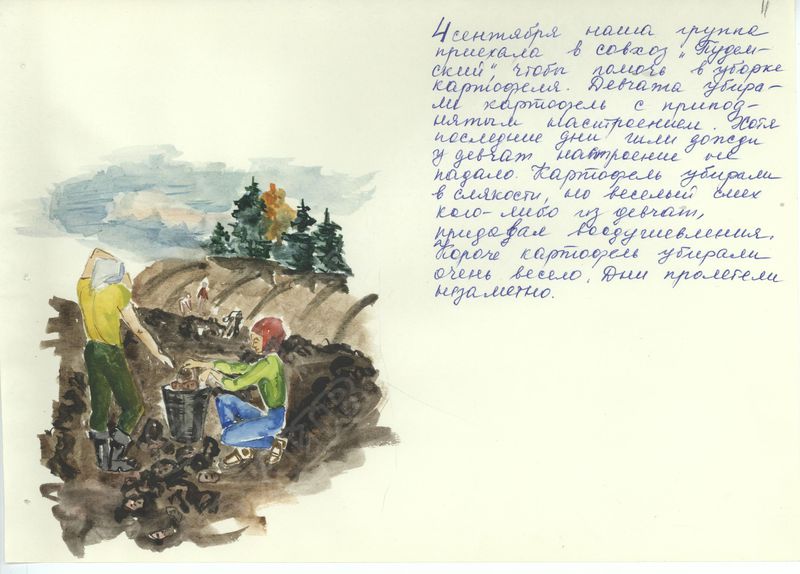 11
4 сентября наша группа
приехала в совхоз „Пудем-
ский", чтобы помочь в уборке
картофеля. Девчата убира-
ли картофель с припод-
нятым настроением. Хотя
последние дни шли дожди
у девчат настроение не
падало. Картофель убирали
в слякости, но веселый смех
кого-либо из девчат,
придавал воодушевления.
Короче картофель убирали
очень весело. Дни пролетели
незаметно.